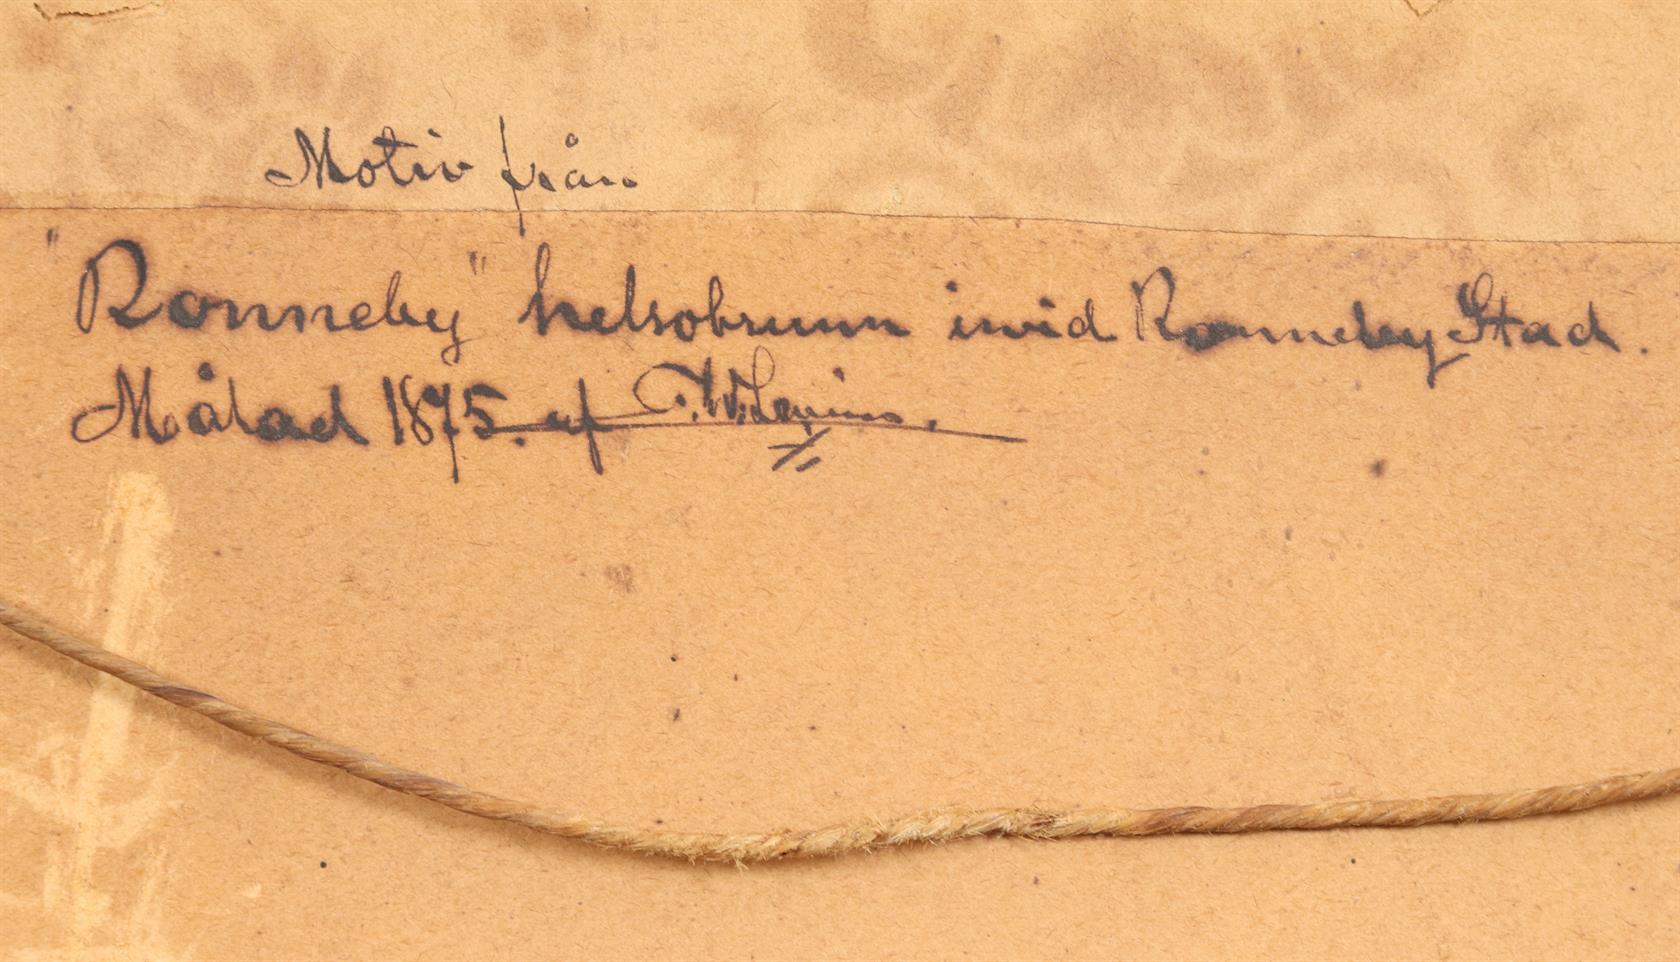 Motiv från
"Ronneby" helsobrunn invid Ronneby Stad.
Målad 1875. af